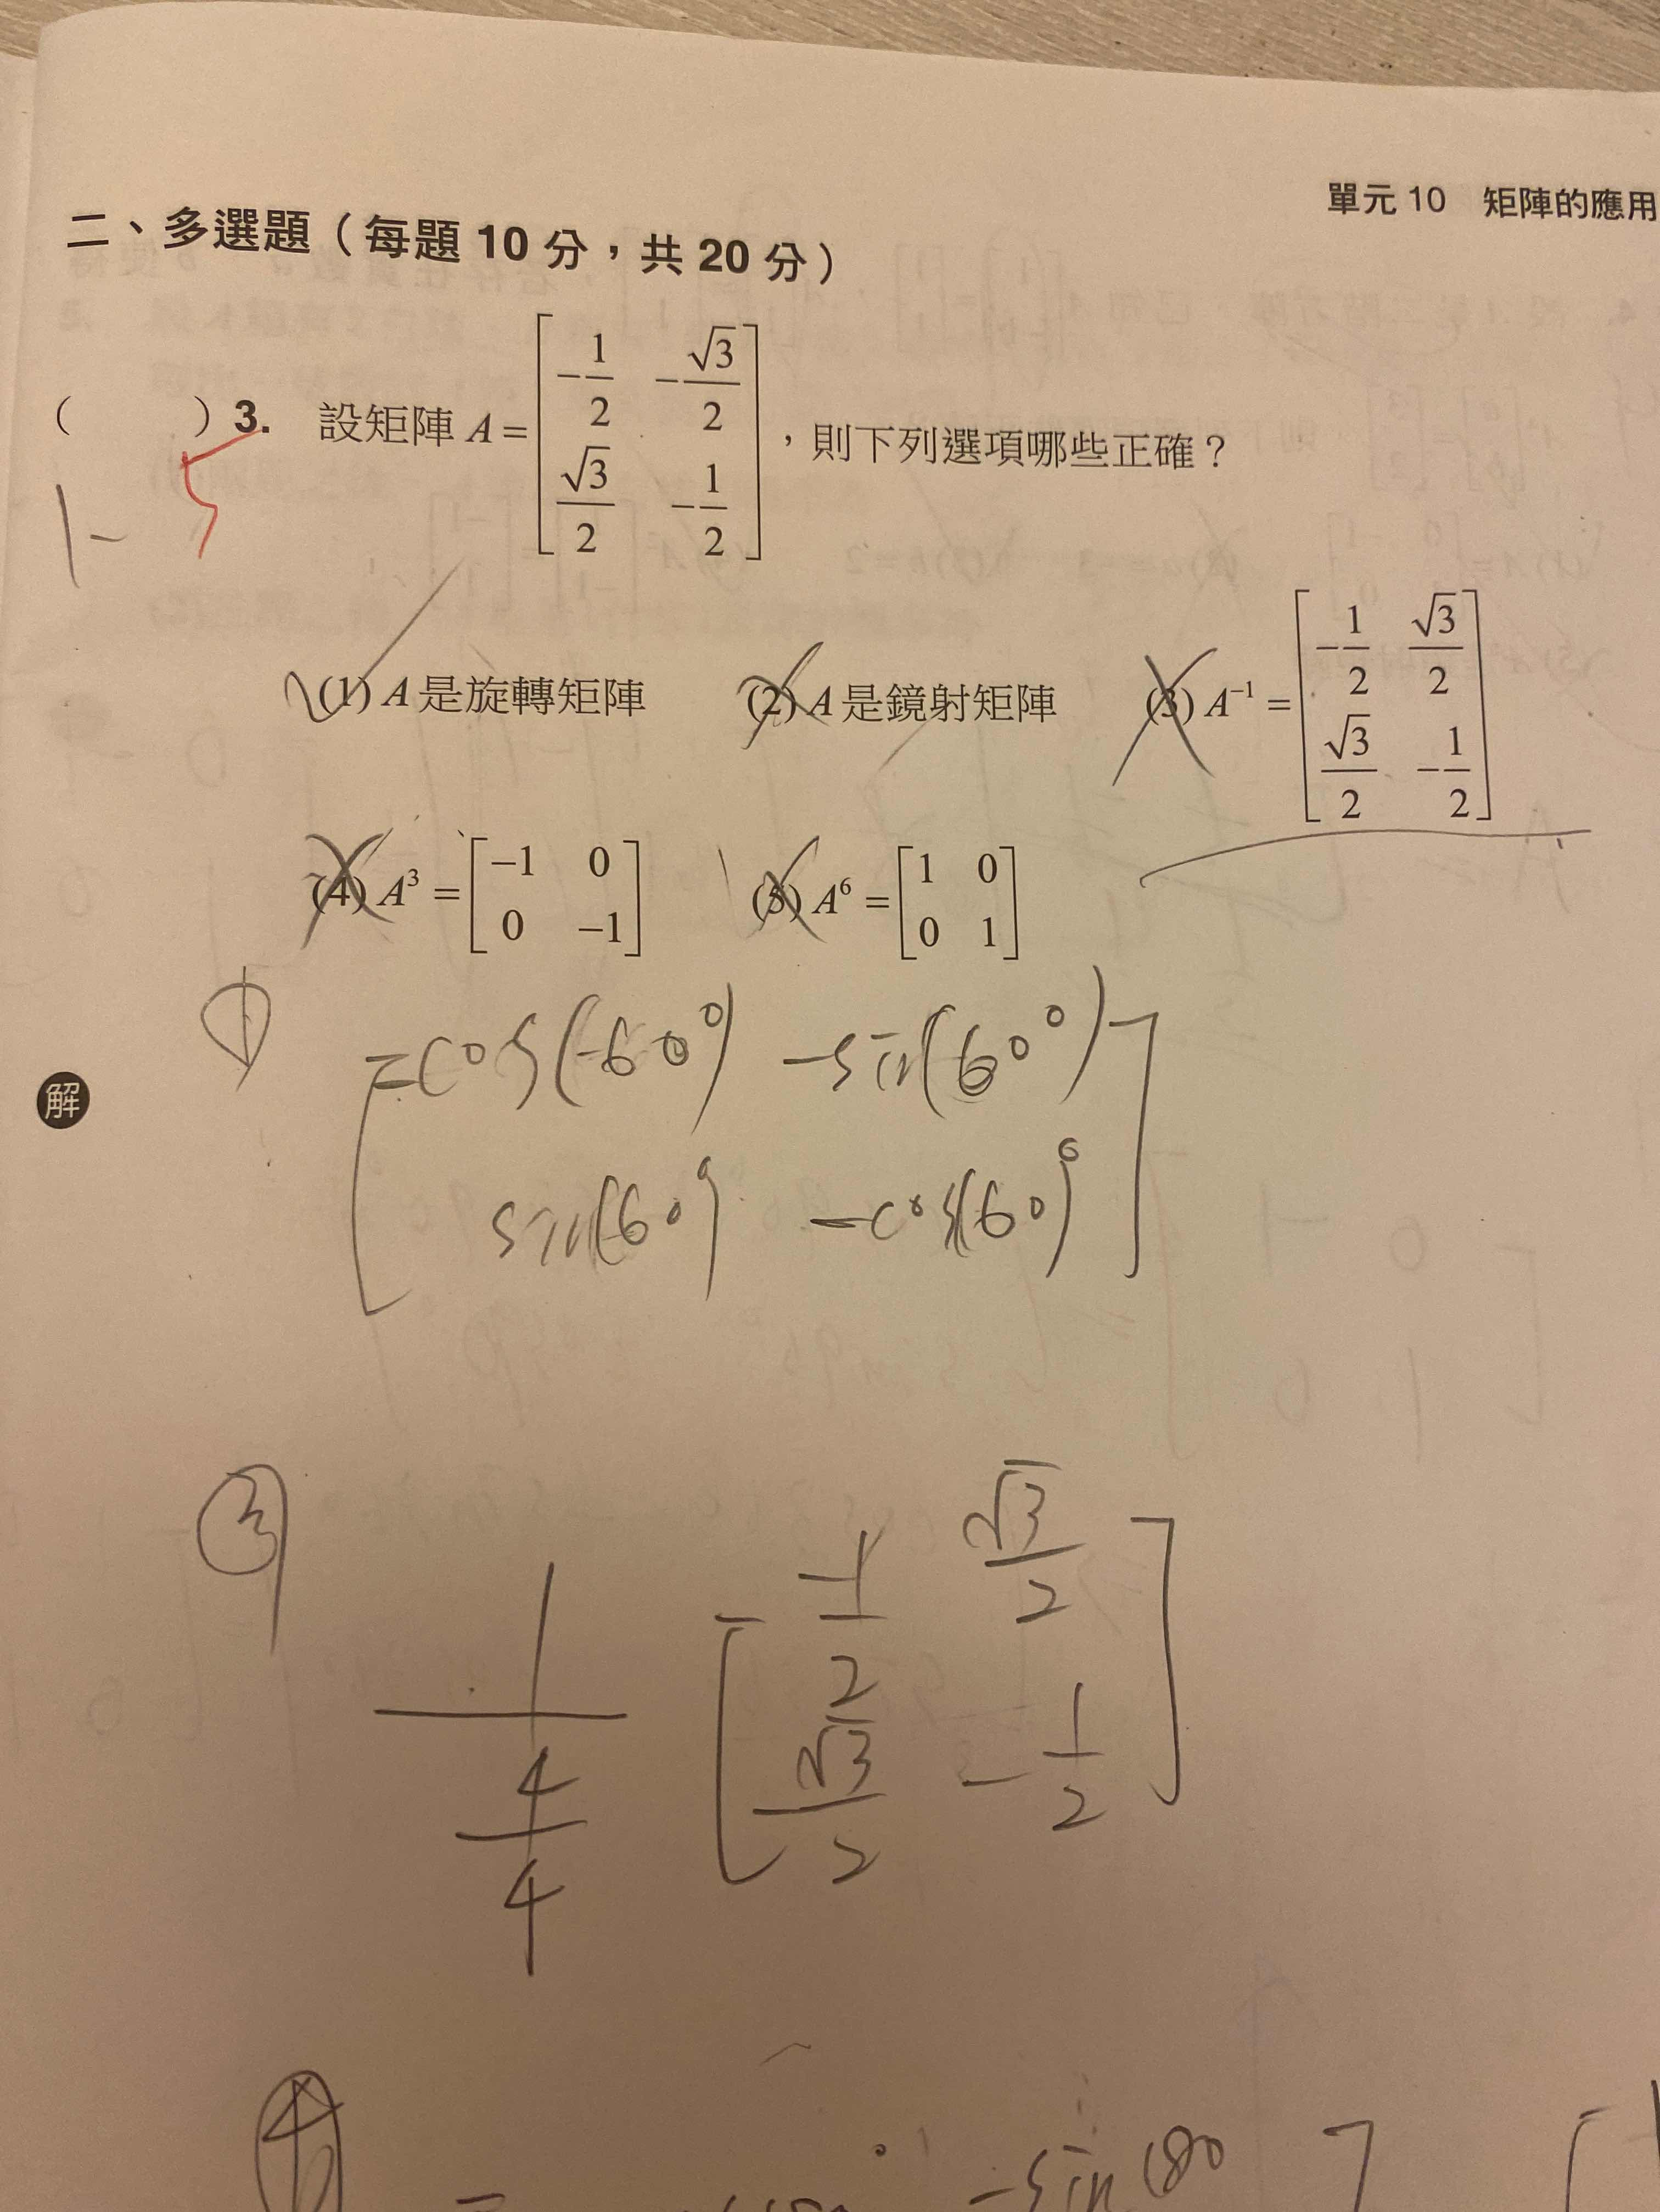 單元 10 矩陣的應用
二、多選題（每題 10 分，共 20 分）
(　　) 3. 設矩陣 A = [ -1/2 -√3/2 ; √3/2 -1/2 ]，則下列選項哪些正確？
(1) A 是旋轉矩陣 (2) A 是鏡射矩陣 (3) A⁻¹ = [ -1/2 √3/2 ; √3/2 -1/2 ]
(4) A³ = [ -1 0 ; 0 -1 ] (5) A⁶ = [ 1 0 ; 0 1 ]
①
= cos(-60°) -sin(60°)
解
sin(60°) -cos(60°)
③
1/(4/4) [ -1/2 √3/2 ; √3/2 -1/2 ]
④
-sin 180